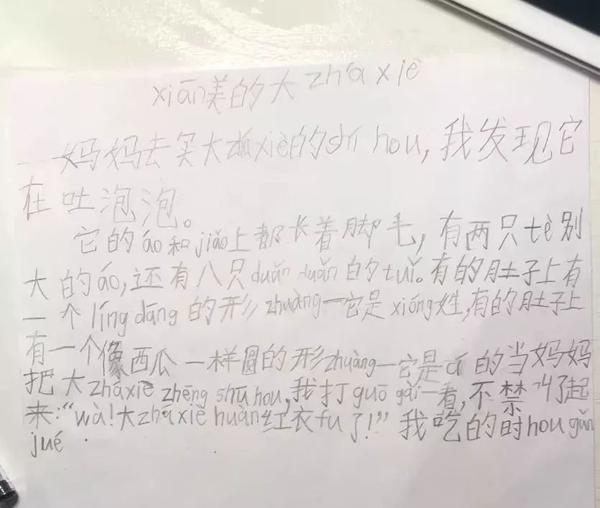 xiān美的大zháxiè
妈妈去买大záxiè的shí hou,我发现它
在吐泡泡。
它的áo和jiǎo上都长着脚毛,有两只tè别
大的áo,还有八只duǎn duǎn的tuǐ。有的肚子上有
一个líng dāng的形zhuàng一它是xióng姓,有的肚子上
有一个像西瓜一样圆的形zhuàng一它是cí的当妈妈
把大zháxiè zhēng shú hou,我打guō gài一看,不禁叫了起
来:“wa!大zháxiè huàn红衣fu了!”我吃的时hou gǎn
jué